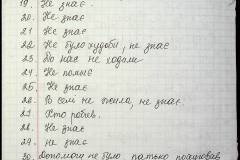 19. Не знає
20. Не знає
21. Не знає
22. Не було худоби, не знає
23. До нас не ходили
24. Не помнє
25. Не знає
26. В селі не жила, не знає.
27. Хто робив.
28. Не знає
29. Не знає.
30. Допомоги не було, батько працював